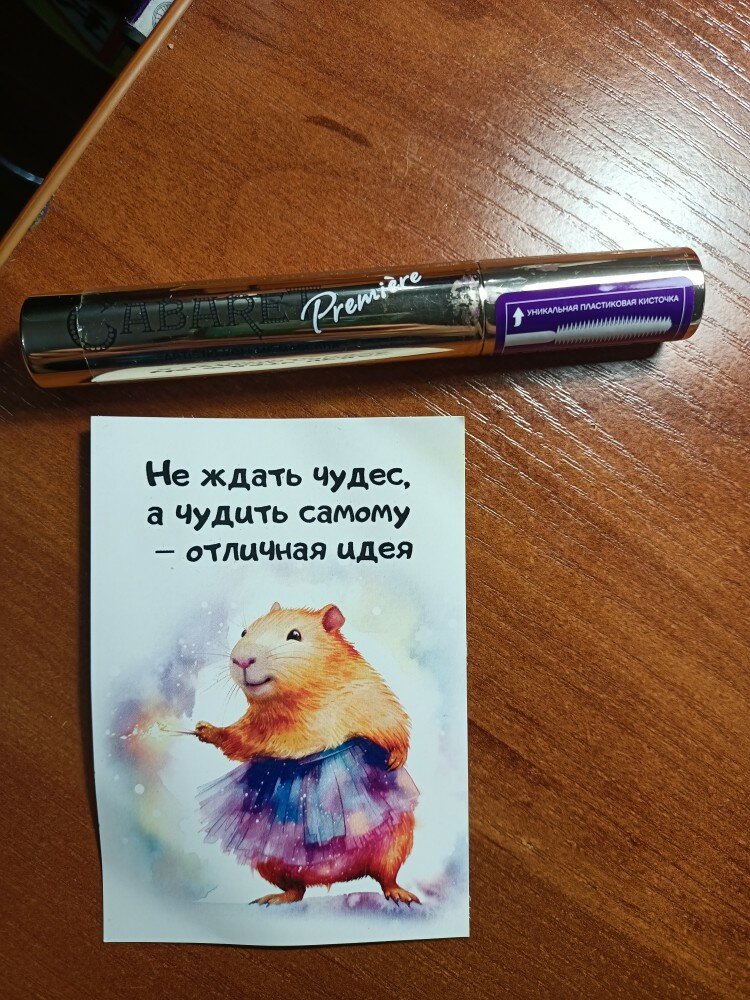 CABARET
Première
УНИКАЛЬНАЯ ПЛАСТИКОВАЯ КИСТОЧКА
Не ждать чудес,
а чудить самому
– отличная идея